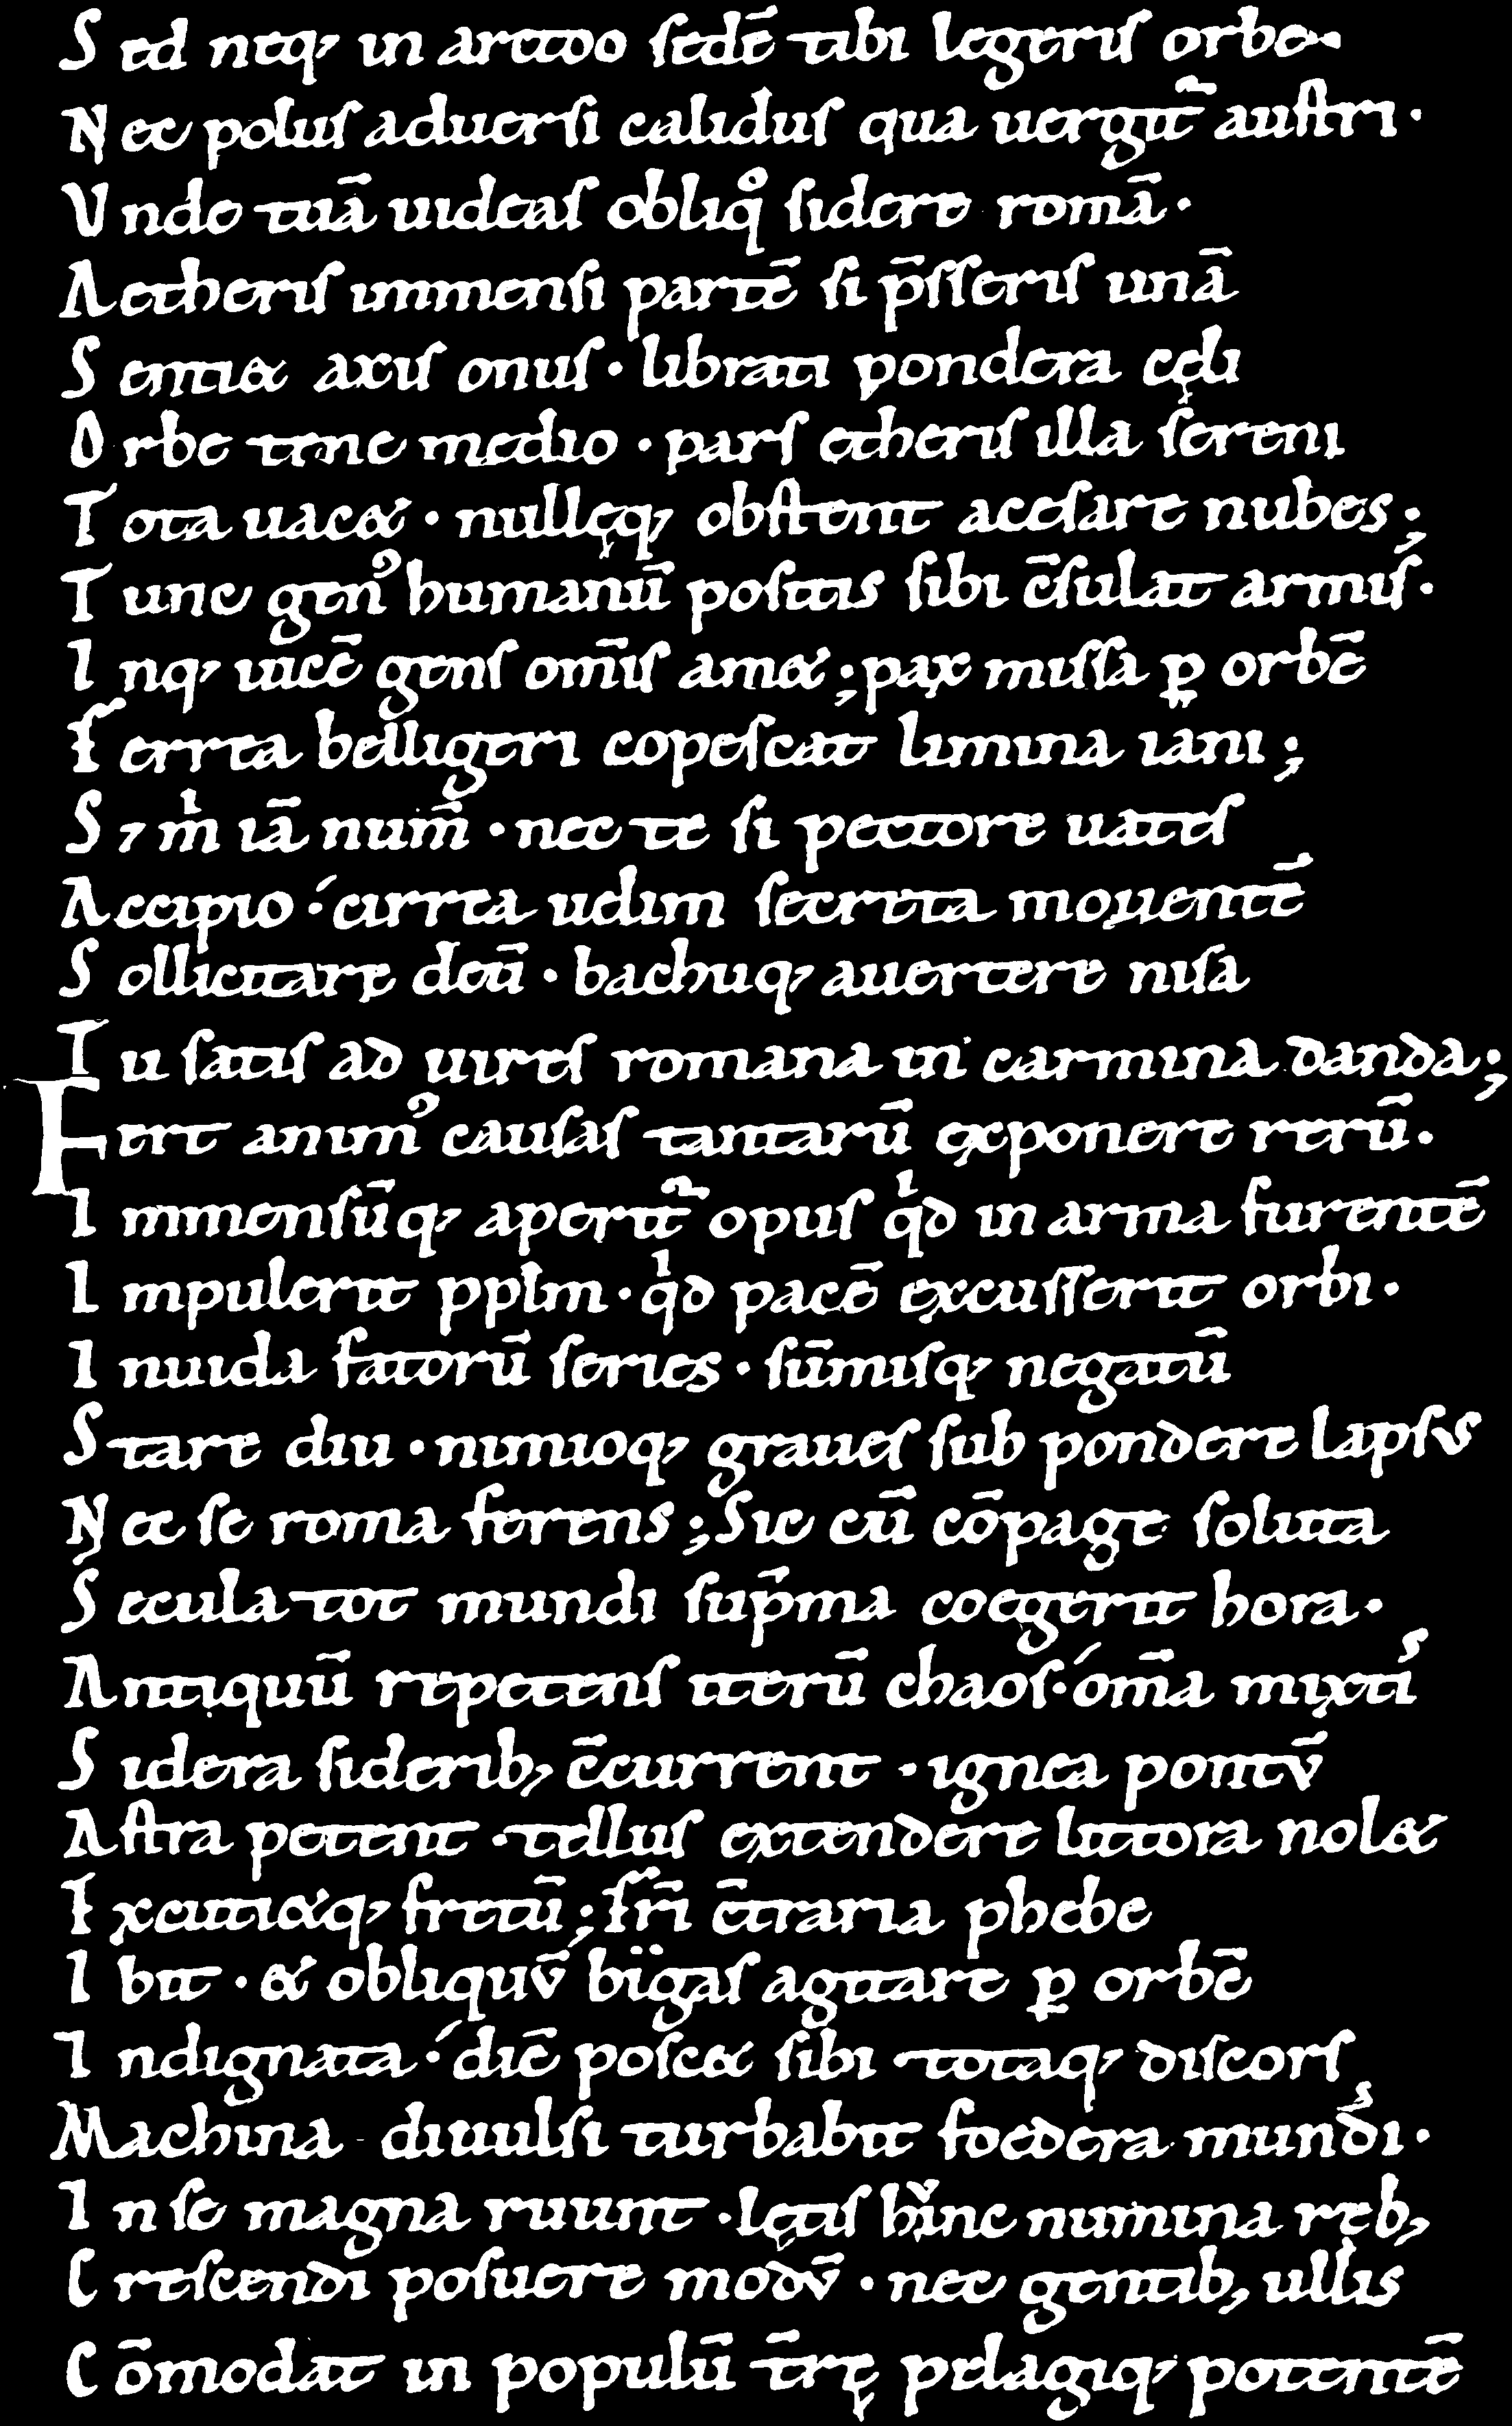 S ed neq; in arctoo sedē tibi legeris orbe.
N ec polus aduersi calidus qua uergit᷑ austri.
V nde tuā uideas obliqͦ sidere romā.
A etheris immensi partē si p̄sseris unā
S entiet axis onus. librati pondera cęli
O rbe tene medio. pars etheris illa sereni
T ota uacet. nullęq; obstent a cesare nubes;
T unc genꝰ humanū positis sibi c̄sulat armis.
I nq; uicē gens om̄is amet; pax missa ꝑ orbē
F errea belligeri copescat limina iani;
S; mͥ iā num̄. nec te si pectore uates
A ccipio. cirrea uelim secreta mouentē
S ollicitare deū. bachuq; auertere nisa
T u satis ad uires romana in carmina danda;
Fert animꝰ causas tantarū exponere rerū.
I mmensūq; aperit᷑ opus qͥd in arma furentē
I mpulerit pplm. qͥd pacē excusserit orbi.
I nuida fatorū series. sūmisq; negatū
S tare diu. nimioq; graues sub pondere lapsus
N ec se roma ferens; Sic cū cōpage soluta
S ecula tot mundi sup̄ma coegerit hora.
A ntiquū repetens iterū chaos. om̄a mixtis
S idera siderib; c̄current. ignea pontū
A stra petent. tellus extendere littora nolet
E xcutietq; fretū; fr̄i c̄traria phebe
I bit. & obliquū bigas agitare ꝑ orbē
I ndignata. diē poscet sibi totaq; discors
Machina diuulsi turbabit foedera mundi.
I n se magna ruunt. lętis hinc numina reb;
C rescendi posuere modū. nec gentib; ullis
C ōmodat in populū t̄rę pelagiq; potentē